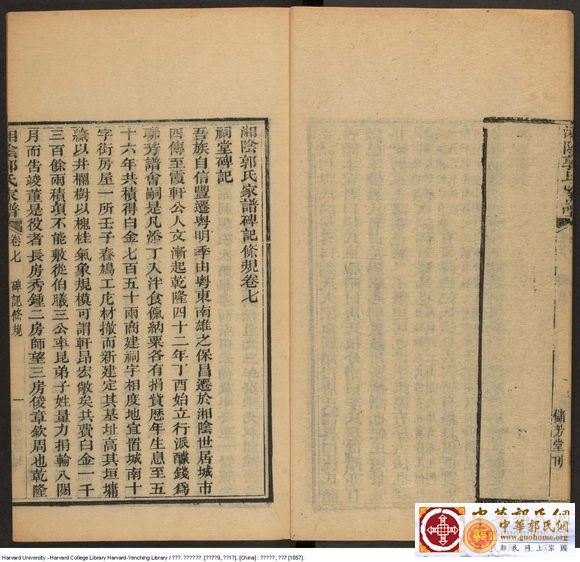 湘陰郭氏家譜
芳堂刊
湘陰郭氏家譜碑記條規卷七
祠堂碑記
吾族自信豐遷粵明季由粵東南雄之保昌遷於湘陰世居城市
四傳至霞軒公人文漸起乾隆四十二年丁酉始立行派醵錢為
聯芳譜會嗣是凡添丁入泮食餼納粟各有捐貲歷年生息至五
十六年共積得白金七百五十兩商建祠宇相度地宜置城南十
字街房屋一所壬子春鳩工庀材撤而新建定其基址高其垣墉
繚以井欄樹以槐桂氣象規模可謂軒昂宏敞矣共費白金一千
三百餘兩積項不能敷從伯曦三公率昆弟子姓量力捐輸八閱
月而告竣董是役者長房秀鍾二房師望三房俊章欽周也乾隆
湘陰郭氏家譜 卷七 碑記條規 一
中華郭氏網
Harvard University - Harvard College Library Harvard-Yenching Library / ???. ??????. [????9, ??1?]. [China] : ?????, ??7 [1857].